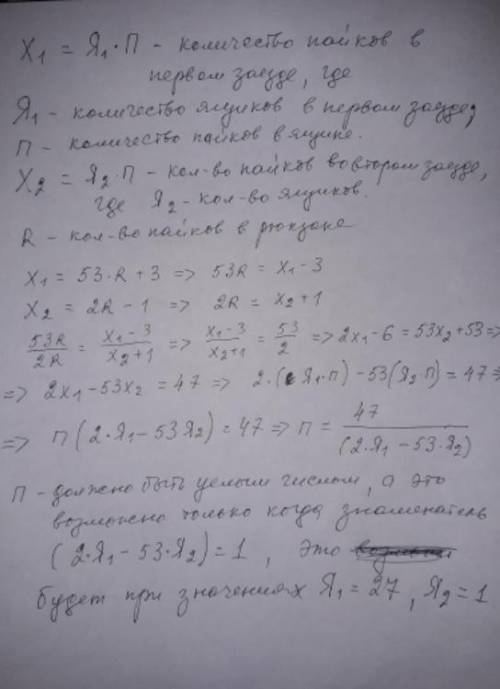 X₁ = Я₁·П – количество пайков в
первом заезде, где
Я₁ – количество ящиков в первом заезде;
П – количество пайков в ящике.
X₂ = Я₂·П – кол-во пайков во втором заезде,
где Я₂ – кол-во ящиков.
R – кол-во пайков в рюкзаке
X₁ = 53·R + 3 => 53R = X₁ – 3
X₂ = 2R – 1 => 2R = X₂ + 1
53R/2R = (X₁ – 3)/(X₂ + 1) => (X₁ – 3)/(X₂ + 1) = 53/2 => 2X₁ – 6 = 53X₂ + 53 =>
=> 2X₁ – 53X₂ = 47 => 2·(Я₁·П) – 53(Я₂·П) = 47 =>
=> П(2·Я₁ – 53Я₂) = 47 => П = 47/(2·Я₁ – 53·Я₂)
П – должно быть целым числом, а это
возможно только когда знаменатель
(2·Я₁ – 53·Я₂) = 1, это
будет при значениях Я₁ = 27, Я₂ = 1